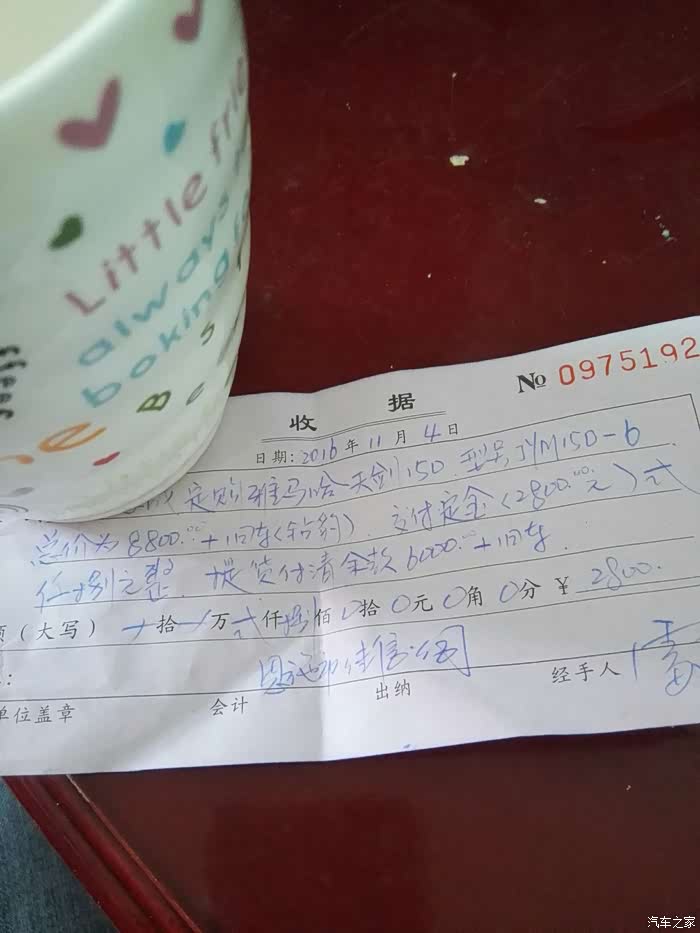 Little frie
always
boking
B s
e
收 据
№ 0975192
日期: 2016 年 11 月 4 日
定购雅马哈天剑150 型号JYM150-6
总价为8800.00+旧车(钻豹). 交付定金(2800.00元)弍
仟捌佰元整. 提货付清余款6000.00+旧车.
(大写) 拾 万 弍 仟 捌 佰 0 拾 0 元 0 角 0 分 ¥ 2800.
单位盖章 会计 出纳 经手人 雷
汽车之家